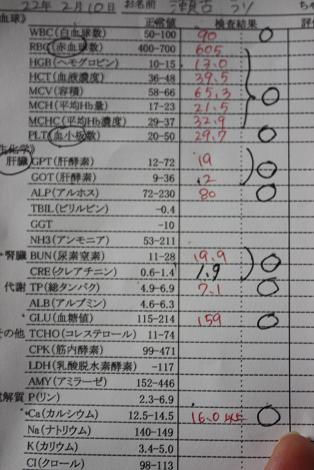 22年 2月10日 お名前
血球) 正常値 検査結果
WBC(白血球数) 50-100 90
RBC(赤血球数) 400-700 605
HGB(ヘモグロビン) 10-15 13.0
HCT(血液濃度) 36-48 39.5
MCV(容積) 58-66 65.3
MCH(平均Hb量) 17-23 21.5
MCHC(平均Hb濃度) 29-37 32.9
PLT(血小板数) 20-50 29.7
生化学)
肝臓 GPT(肝酵素) 12-72 19
GOT(肝酵素) 9-36 .2
ALP(アルホス) 72-230 80
TBIL(ビリルビン) -0.4
GGT -10
NH3(アンモニア) 53-211
腎臓 BUN(尿素窒素) 11-28 19.9
CRE(クレアチニン) 0.6-1.4 1.9
代謝 TP(総タンパク) 4.9-6.9 7.1
ALB(アルブミン) 4.6-6.3
GLU(血糖値) 115-214 159
その他 TCHO(コレステロール) 11-74
CPK(筋内酵素) 99-471
LDH(乳酸脱水素酵素) -117
AMY(アミラーゼ) 152-446
電解質 P(リン) 2.3-6.9
Ca(カルシウム) 12.5-14.5 16.0
Na(ナトリウム) 140-149
K(カリウム) 3.4-5.0
Cl(クロール) 98-113